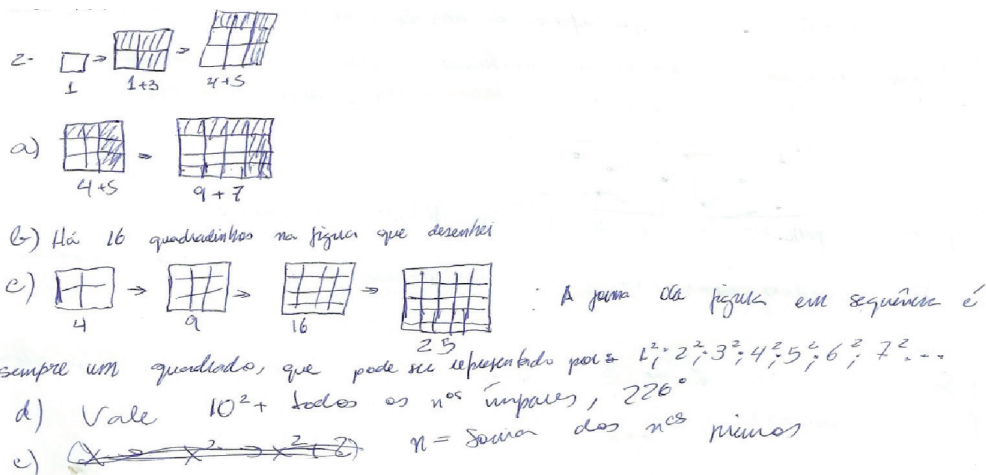 2-
1 1+3 4+5
a)
4+5 9+7
b) Há 16 quadradinhos na figura que desenhei
c)
4 9 16 25
: A forma da figura em sequência é
sempre um quadrado, que pode ser representado por: 1²; 2²; 3²; 4²; 5²; 6²; 7²...
d) Vale 10² + todos os nos ímpares,
e) n = Soma dos nos primos